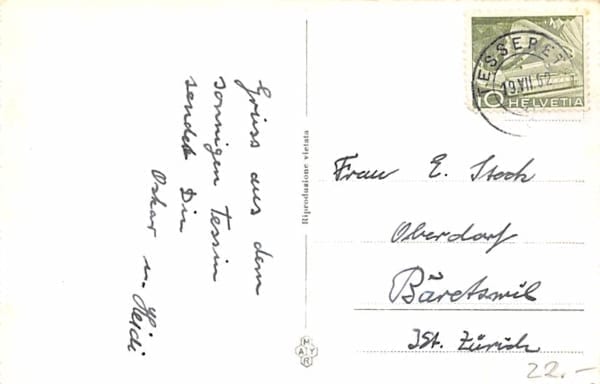 Gruss aus dem
sonnigen Tessin
sendet Dir
Oskar u. Heidi
Riproduzione vietata
MAYR
TESSERETE
19.VII.52
10 HELVETIA
Frau E. Stoch
Oberdorf
Bäretswil
Kt. Zürich
22.-